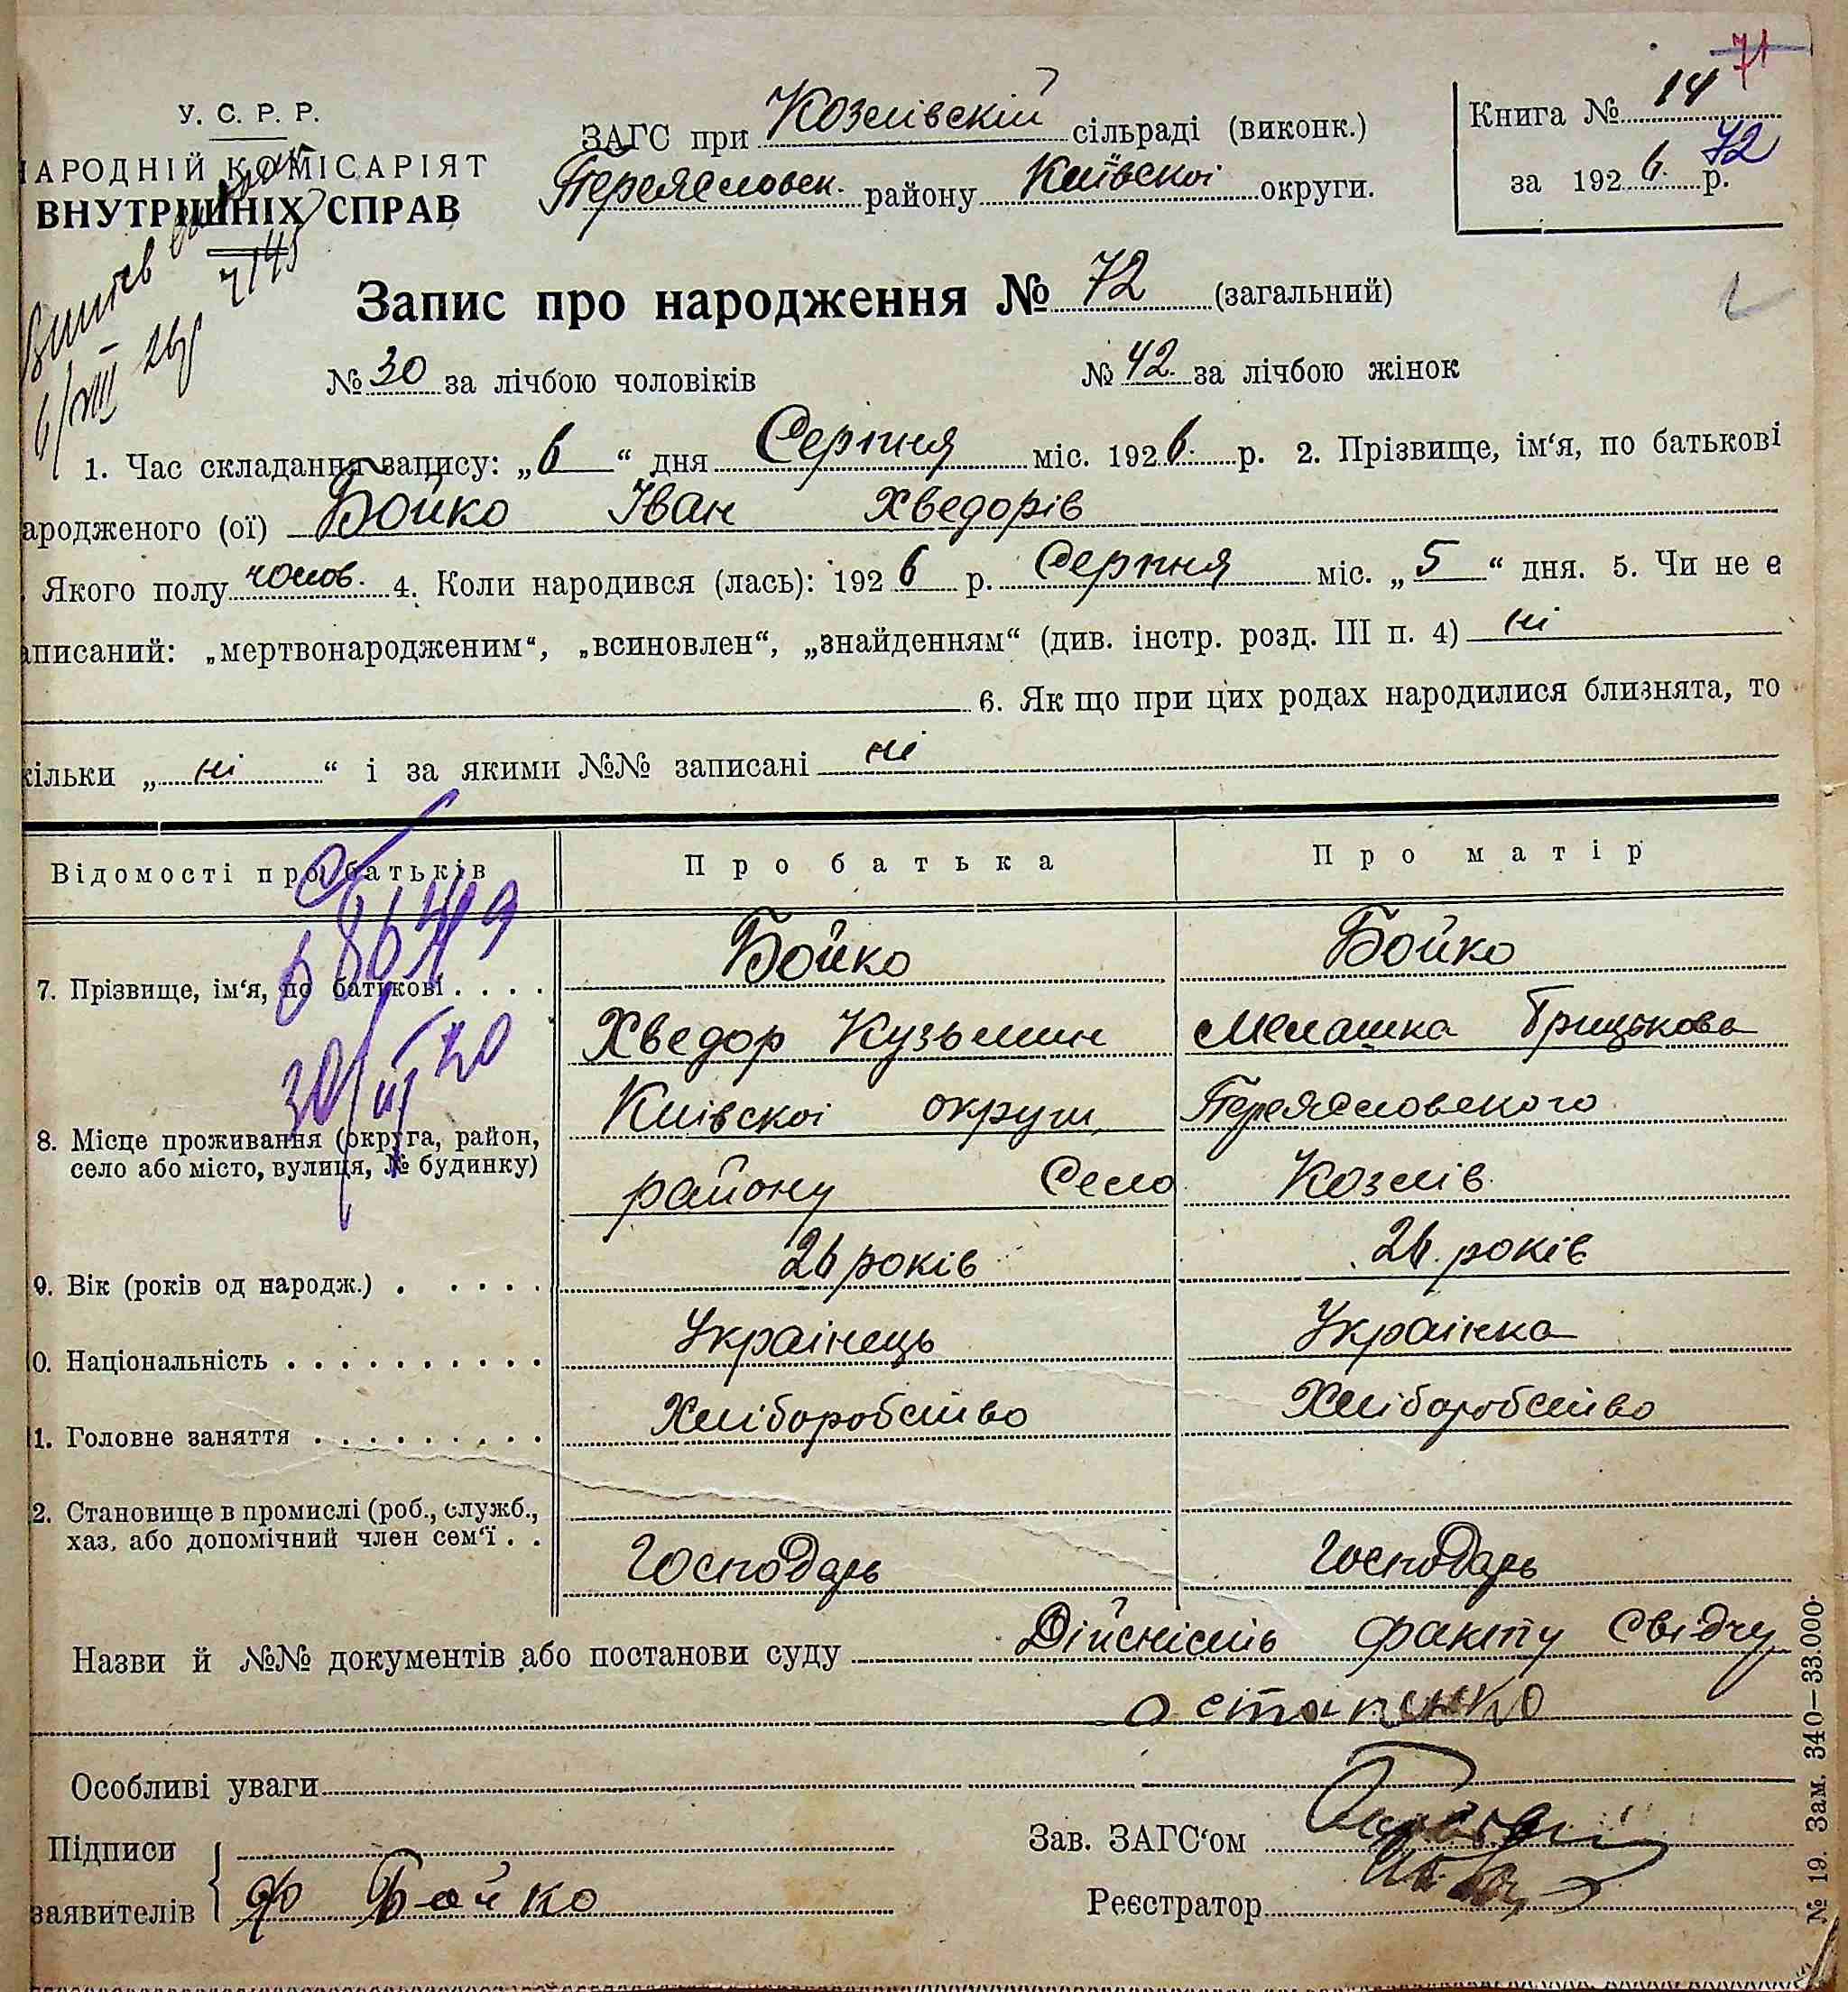 71
У. С. Р. Р.
АРОДНІЙ КОМІСАРІЯТ
ВНУТРІШНІХ СПРАВ
ЗАГС при Козлівскій сільраді (виконк.)
Переясловск. району Київскоі округи.
Книга № 14
72
за 1926. р.
6/VIII 26р
7145
Запис про народження № 72 (загальний)
№ 30 за лічбою чоловіків № 42. за лічбою жінок
1. Час складання запису: „6“ дня Серпня міс. 1926. р. 2. Прізвище, ім‘я, по батькові
ародженого (ої) Бойко Іван Хведорів
Якого полу чолов. 4. Коли народився (лась): 1926 р. Серпня міс. „5“ дня. 5. Чи не є
аписаний: „мертвонародженим“, „всиновлен“, „знайденням“ (див. інстр. розд. III п. 4) ні
6. Як що при цих родах народилися близнята, то
кільки „ні“ і за якими №№ записані ні
Відомості про батьків Про батька Про матір
7. Прізвище, ім‘я, по батькові . . . . Бойко Бойко
Хведор Кузьмин Мелашка Грицькова
8. Місце проживання (округа, район,
село або місто, вулиця, № будинку)
Киівскоі округи, Переясловского
району Село Козлів.
9. Вік (років од народж.) . . . . . 26 років 26. років
0. Національність . . . . . . . . . . Украінець Украінка
1. Головне заняття . . . . . . . . . Хліборобство Хліборобство
2. Становище в промислі (роб., служб.,
хаз. або допомічний член сем‘ї . . Господарь Господарь
Назви й №№ документів або постанови суду Дійсність факту Свідчу
Остапенко
Особливі уваги
Підписи
заявителів Ф Бойко
Зав. ЗАГС‘ом
Реєстратор
№ 19. Зам. 340—33.000.